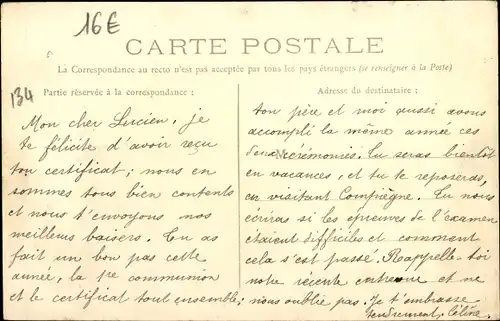 16€
CARTE POSTALE
La Correspondance au recto n'est pas acceptée par tous les pays étrangers (se renseigner à la Poste)
134
Partie réservée à la correspondance :
Mon cher Lucien, je
te félicite d'avoir reçu
ton certificat; nous en
sommes tous bien contents
et nous t'envoyons nos
meilleurs baisers. Tu as
fait un bon pas cette
année, la 1re communion
et le certificat tout ensemble;
Adresse du destinataire :
ton père et moi aussi avons
accompli la même année ces
deux cérémonies. Tu seras bientôt
en vacances, et tu te reposeras,
en visitant Compiègne. Tu nous
écriras si les épreuves de l'examen
étaient difficiles et comment
cela s'est passé. Rappelle-toi
notre récente entrevue et ne
nous oublie pas. Je t'embrasse
tendrement, Célina.